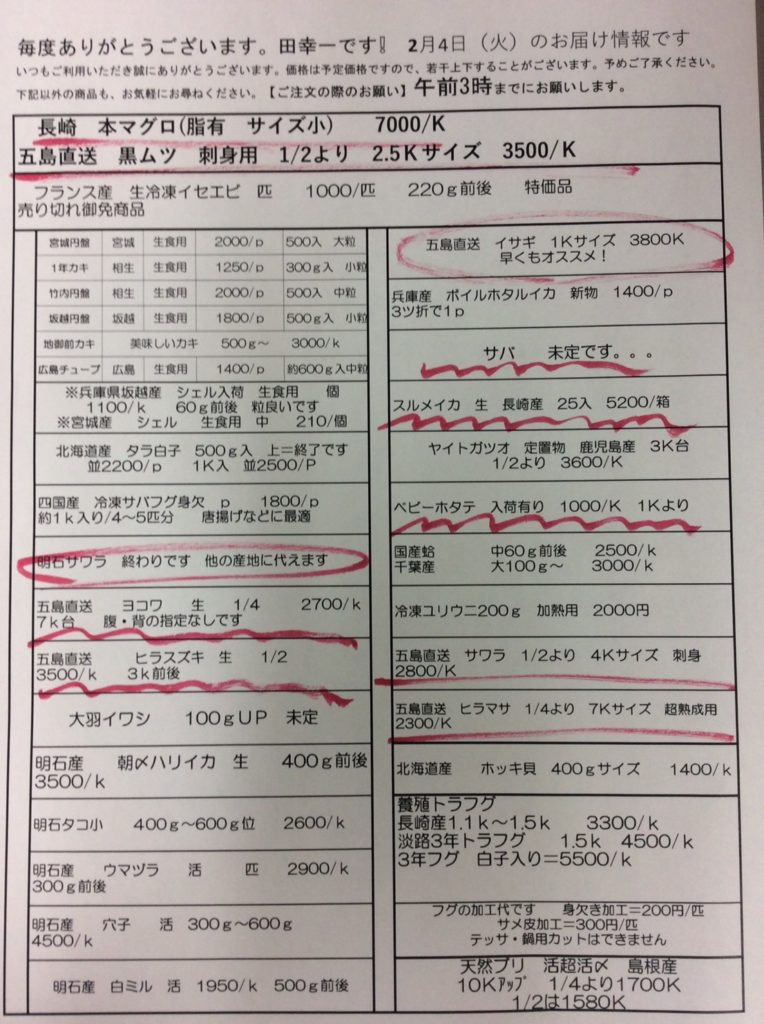 毎度ありがとうございます。田幸一です!! 2月4日（火）のお届け情報です
いつもご利用いただき誠にありがとうございます。価格は予定価格ですので、若干上下することがございます。予めご了承ください。
下記以外の商品も、お気軽にお尋ねください。【ご注文の際のお願い】午前3時までにお願いします。
長崎 本マグロ(脂有 サイズ小) 7000/K
五島直送 黒ムツ 刺身用 1/2より 2.5Kサイズ 3500/K
フランス産 生冷凍イセエビ 匹 1000/匹 220g前後 特価品
売り切れ御免商品
宮城円盤 宮城 生食用 2000/p 500入 大粒
1年カキ 相生 生食用 1250/p 300g入 小粒
竹内円盤 相生 生食用 2000/p 500入 中粒
坂越円盤 坂越 生食用 1800/p 500g入 小粒
地御前カキ 美味しいカキ 500g～ 3000/k
広島チューブ 広島 生食用 1400/p 約600g入中粒
※兵庫県坂越産 シェル入荷 生食用 個
1100/k 60g前後 粒良いです
※宮城産 シェル 生食用 中 210/個
北海道産 タラ白子 500g入 上=終了です
並2200/p 1K入 並2500/P
四国産 冷凍サバフグ身欠 p 1800/p
約1k入り/4～5匹分 唐揚げなどに最適
明石サワラ 終わりです 他の産地に代えます
五島直送 ヨコワ 生 1/4 2700/k
7k台 腹・背の指定なしです
五島直送 ヒラスズキ 生 1/2
3500/k 3k前後
大羽イワシ 100gUP 未定
明石産 朝〆ハリイカ 生 400g前後
3500/k
明石タコ小 400g～600g位 2600/k
明石産 ウマヅラ 活 匹 2900/k
300g前後
明石産 穴子 活 300g～600g
4500/k
明石産 白ミル 活 1950/k 500g前後
五島直送 イサギ 1Kサイズ 3800K
早くもオススメ！
兵庫産 ボイルホタルイカ 新物 1400/p
3ツ折で1p
サバ 未定です。。。
スルメイカ 生 長崎産 25入 5200/箱
ヤイトガツオ 定置物 鹿児島産 3K台
1/2より 3600/K
ベビーホタテ 入荷有り 1000/K 1Kより
国産蛤 中60g前後 2500/k
千葉産 大100g～ 3000/k
冷凍ユリウニ200g 加熱用 2000円
五島直送 サワラ 1/2より 4Kサイズ 刺身
2800/K
五島直送 ヒラマサ 1/4より 7Kサイズ 超熟成用
2300/K
北海道産 ホッキ貝 400gサイズ 1400/k
養殖トラフグ
長崎産1.1k～1.5k 3300/k
淡路3年トラフグ 1.5k 4500/k
3年フグ 白子入り=5500/k
フグの加工代です 身欠き加工=200円/匹
サメ皮加工=300円/匹
テッサ・鍋用カットはできません
天然ブリ 活超活〆 島根産
10Kアップ 1/4より1700K
1/2は1580K